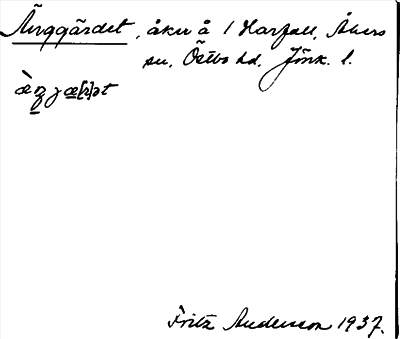 Änggärdet, åker å 1 Harfall, Åkers
sn, Östbo hd, Jönk. l.
Fritz Andersson 1937.